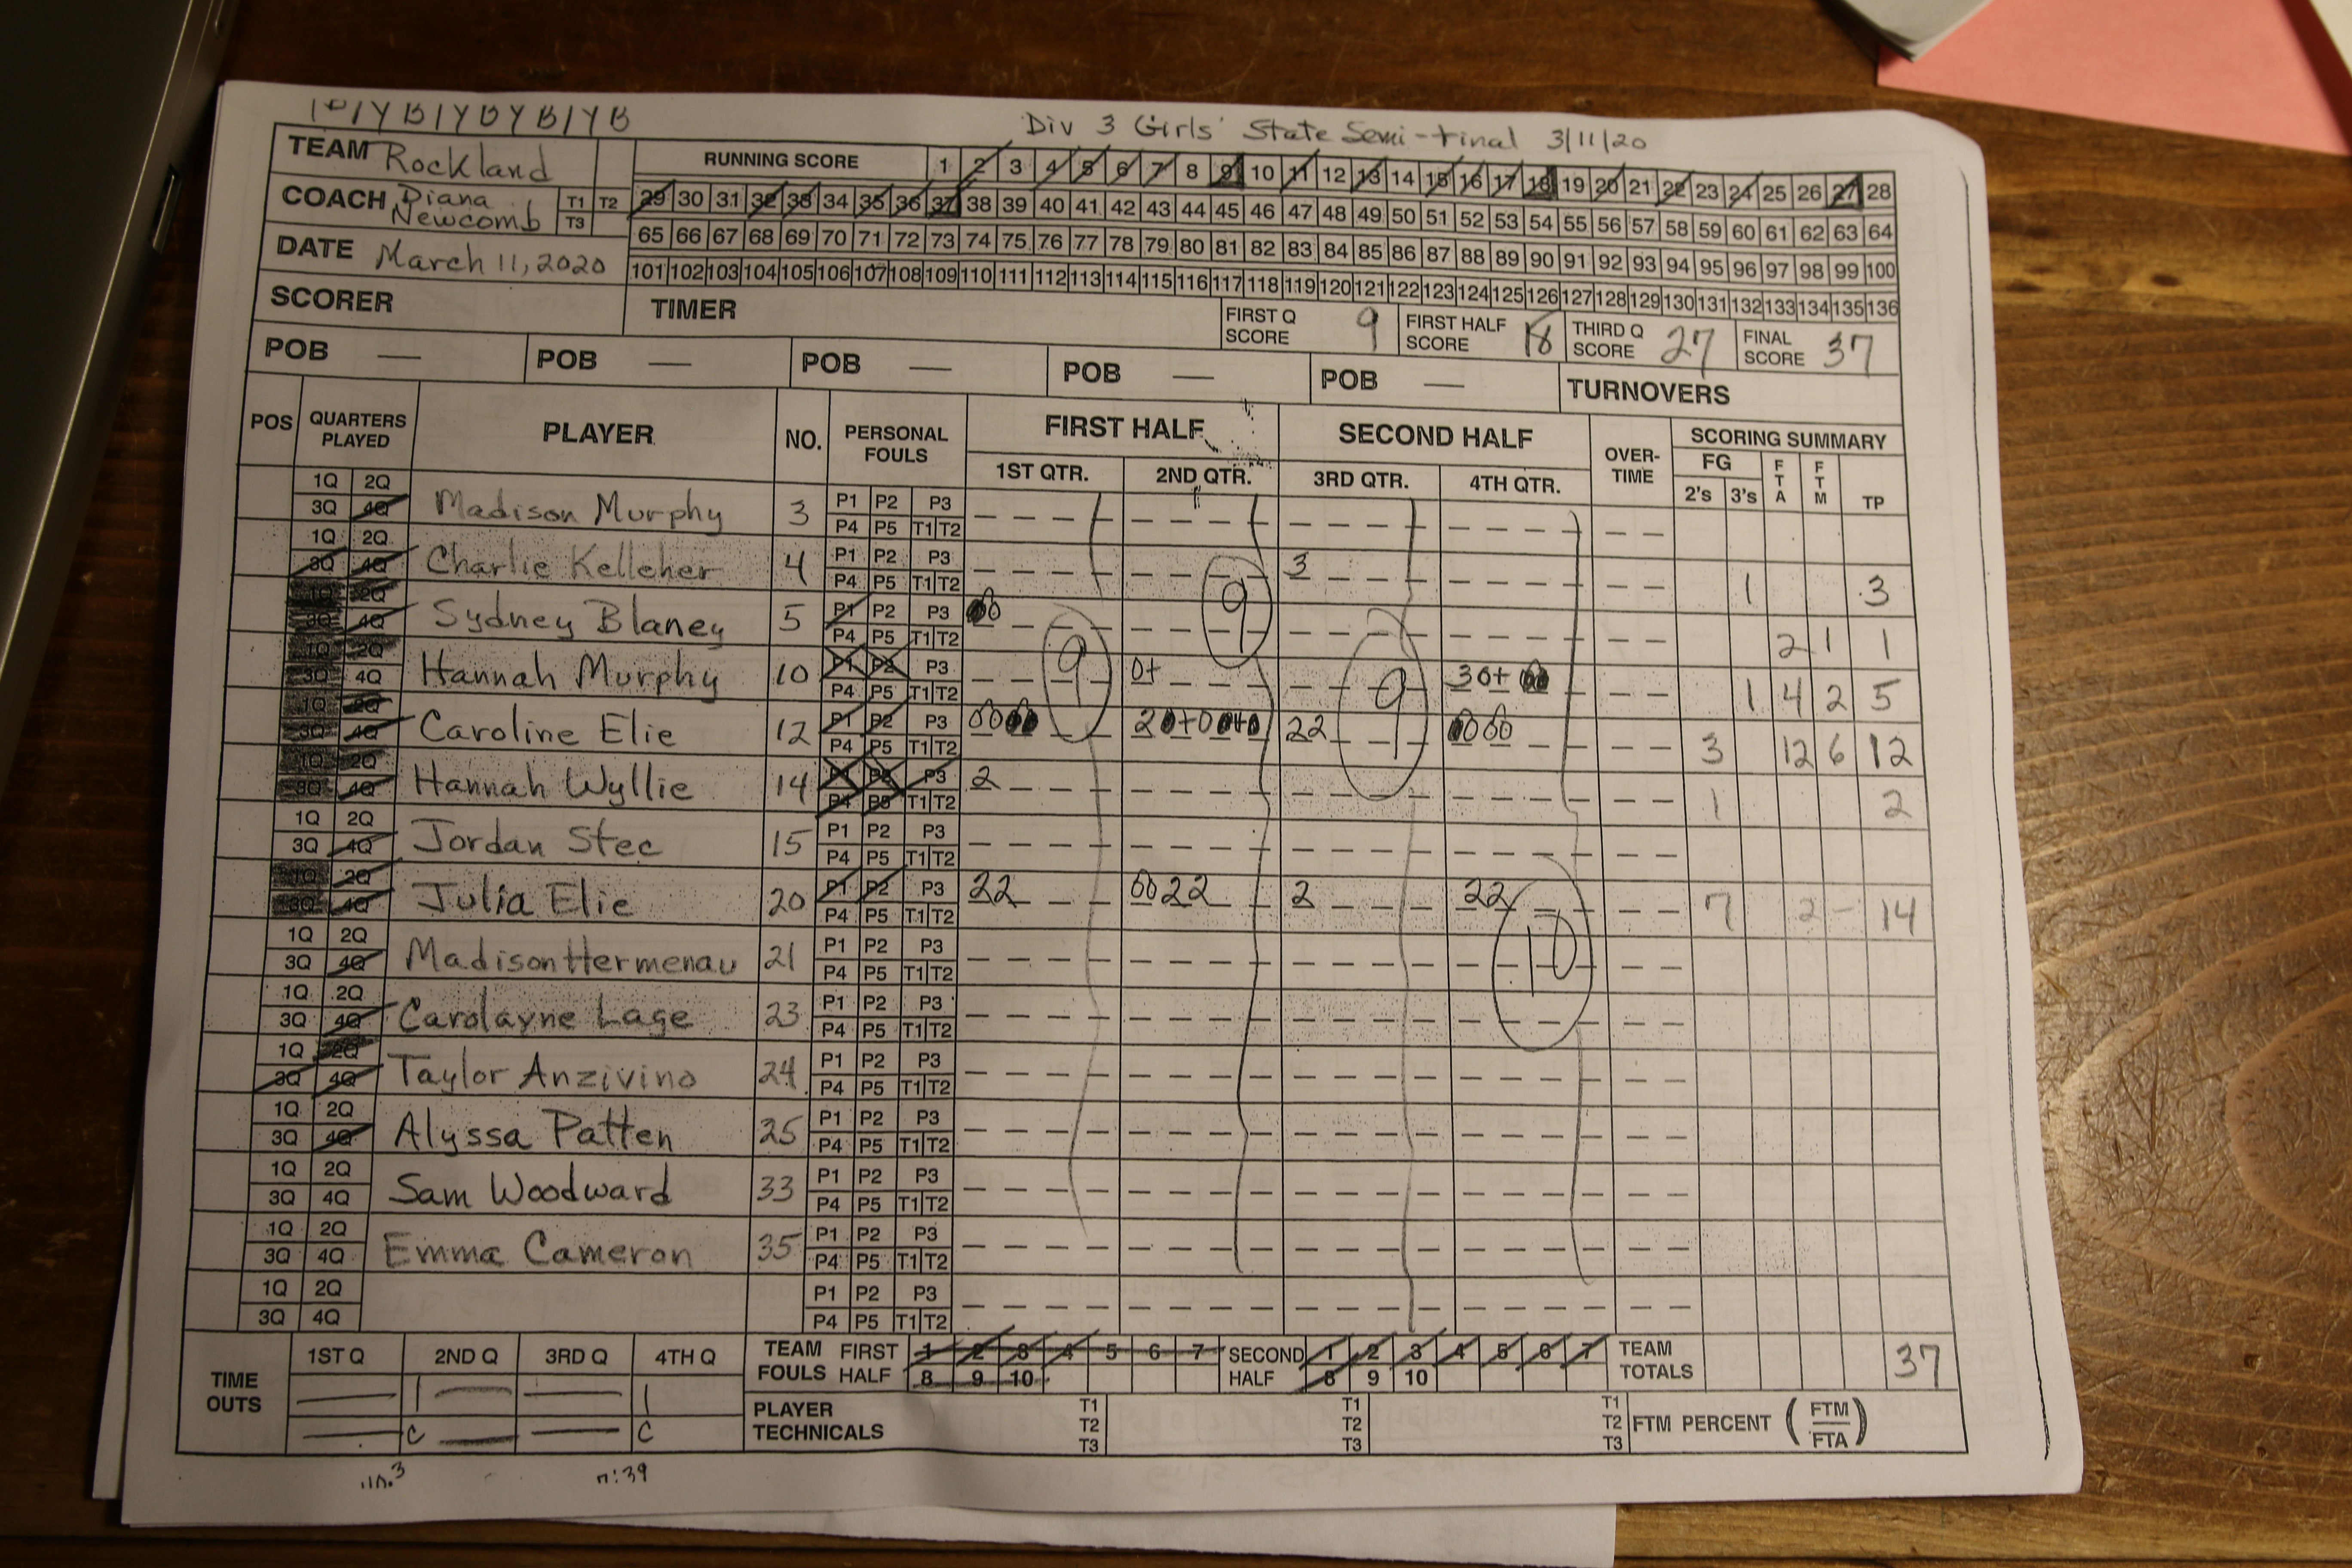 Div 3 Girls' State Semi-final 3/11/20
TEAM Rockland
RUNNING SCORE 1 2 3 4 5 6 7 8 9 10 11 12 13 14 15 16 17 18 19 20 21 22 23 24 25 26 27 28
COACH Diana Newcomb T1 T2 T3
29 30 31 32 33 34 35 36 37 38 39 40 41 42 43 44 45 46 47 48 49 50 51 52 53 54 55 56 57 58 59 60 61 62 63 64
65 66 67 68 69 70 71 72 73 74 75 76 77 78 79 80 81 82 83 84 85 86 87 88 89 90 91 92 93 94 95 96 97 98 99 100
DATE March 11, 2020
101 102 103 104 105 106 107 108 109 110 111 112 113 114 115 116 117 118 119 120 121 122 123 124 125 126 127 128 129 130 131 132 133 134 135 136
SCORER TIMER FIRST Q SCORE 9 FIRST HALF SCORE 18 THIRD Q SCORE 27 FINAL SCORE 37
POB — POB — POB — POB — POB — TURNOVERS
POS QUARTERS PLAYED PLAYER NO. PERSONAL FOULS FIRST HALF SECOND HALF OVER-TIME SCORING SUMMARY
1ST QTR. 2ND QTR. 3RD QTR. 4TH QTR. FG 2's 3's FTA FTM TP
1Q 2Q 3Q 4Q Madison Murphy 3 P1 P2 P3 P4 P5 T1 T2
1Q 2Q 3Q 4Q Charlie Kelleher 4 P1 P2 P3 P4 P5 T1 T2 3 1 3
1Q 2Q 3Q 4Q Sydney Blaney 5 P1 P2 P3 P4 P5 T1 T2 9 2 1 1
1Q 2Q 3Q 4Q Hannah Murphy 10 P1 P2 P3 P4 P5 T1 T2 9 0+ 9 30+ 1 4 2 5
1Q 2Q 3Q 4Q Caroline Elie 12 P1 P2 P3 P4 P5 T1 T2 22 3 12 6 12
1Q 2Q 3Q 4Q Hannah Wyllie 14 P1 P2 P3 P4 P5 T1 T2 2 1 2
1Q 2Q 3Q 4Q Jordan Stec 15 P1 P2 P3 P4 P5 T1 T2
1Q 2Q 3Q 4Q Julia Elie 20 P1 P2 P3 P4 P5 T1 T2 22 0022 2 22 7 2 - 14
1Q 2Q 3Q 4Q Madison Hermenau 21 P1 P2 P3 P4 P5 T1 T2 10
1Q 2Q 3Q 4Q Carolayne Lage 23 P1 P2 P3 P4 P5 T1 T2
1Q 2Q 3Q 4Q Taylor Anzivino 24 P1 P2 P3 P4 P5 T1 T2
1Q 2Q 3Q 4Q Alyssa Patten 25 P1 P2 P3 P4 P5 T1 T2
1Q 2Q 3Q 4Q Sam Woodward 33 P1 P2 P3 P4 P5 T1 T2
1Q 2Q 3Q 4Q Emma Cameron 35 P1 P2 P3 P4 P5 T1 T2
1Q 2Q 3Q 4Q P1 P2 P3 P4 P5 T1 T2
TIME OUTS 1ST Q 2ND Q 3RD Q 4TH Q
TEAM FOULS FIRST HALF 1 2 3 4 5 6 7 8 9 10 SECOND HALF 1 2 3 4 5 6 7 8 9 10 TEAM TOTALS 37
PLAYER TECHNICALS T1 T2 T3 T1 T2 T3 T1 T2 T3 FTM PERCENT (FTM/FTA)